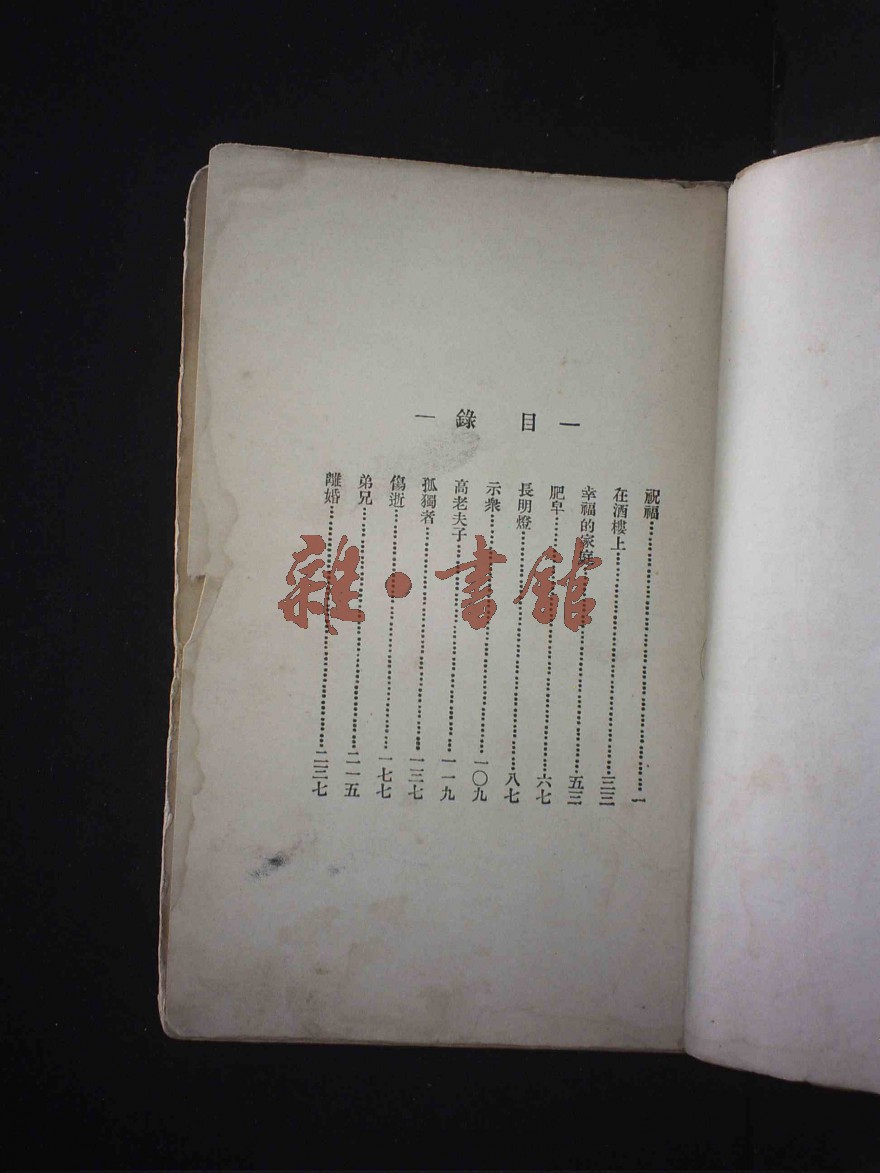 一目錄一
祝福⋯⋯一
在酒樓上⋯⋯三三
幸福的家庭⋯⋯五三
肥皁⋯⋯六七
長明燈⋯⋯八七
示衆⋯⋯一〇九
高老夫子⋯⋯一一九
孤獨者⋯⋯一三七
傷逝⋯⋯一七七
弟兄⋯⋯二一五
離婚⋯⋯二三七
雜·書館